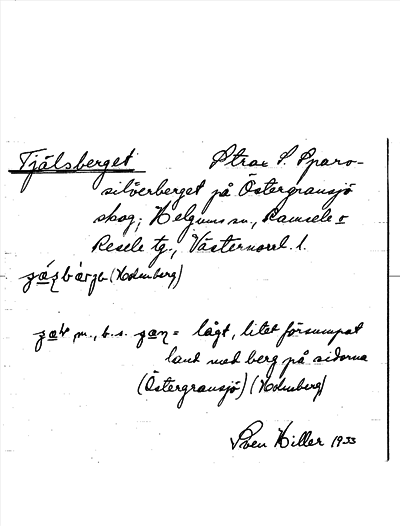 Tjälsberget Strax S. Sparo-
silverberget på Östergransjö
skog; Helgums sn., Ramsele o
Resele tg., Västernorrl. l.
(Holmberg)
m., b. s. = lågt, litet försumpat
land med berg på sidorna
(Östergransjö) (Holmberg)
Sven Hiller 1933